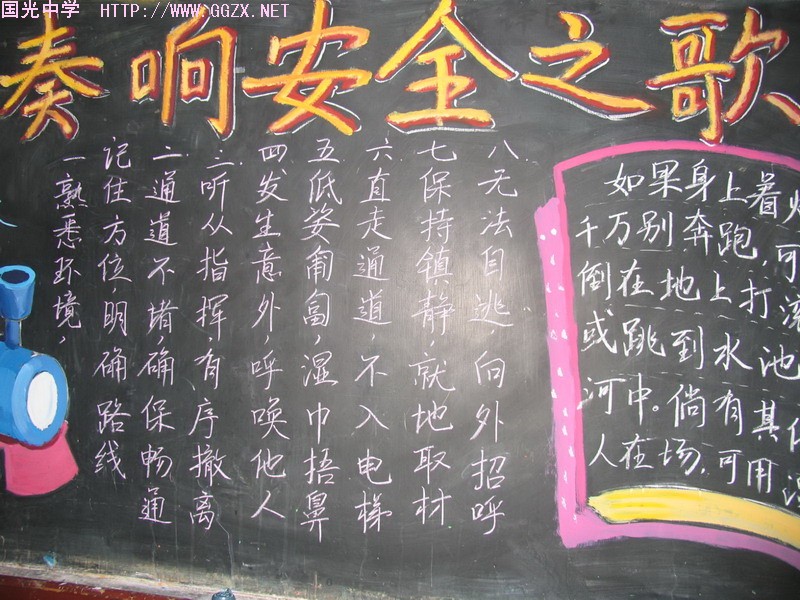 国光中学 HTTP://WWW.GGZX.NET
奏响安全之歌
一熟悉环境,
记住方位,明确路线
二通道不堵,确保畅通
三听从指挥,有序撤离
四发生意外,呼唤他人
五低姿匍匐,湿巾捂鼻
六直走通道,不入电梯
七保持镇静,就地取材
八无法自逃,向外招呼
如果身上着火
千万别奔跑,可
倒在地上打滚
或跳到水池
河中。倘有其
人在场,可用